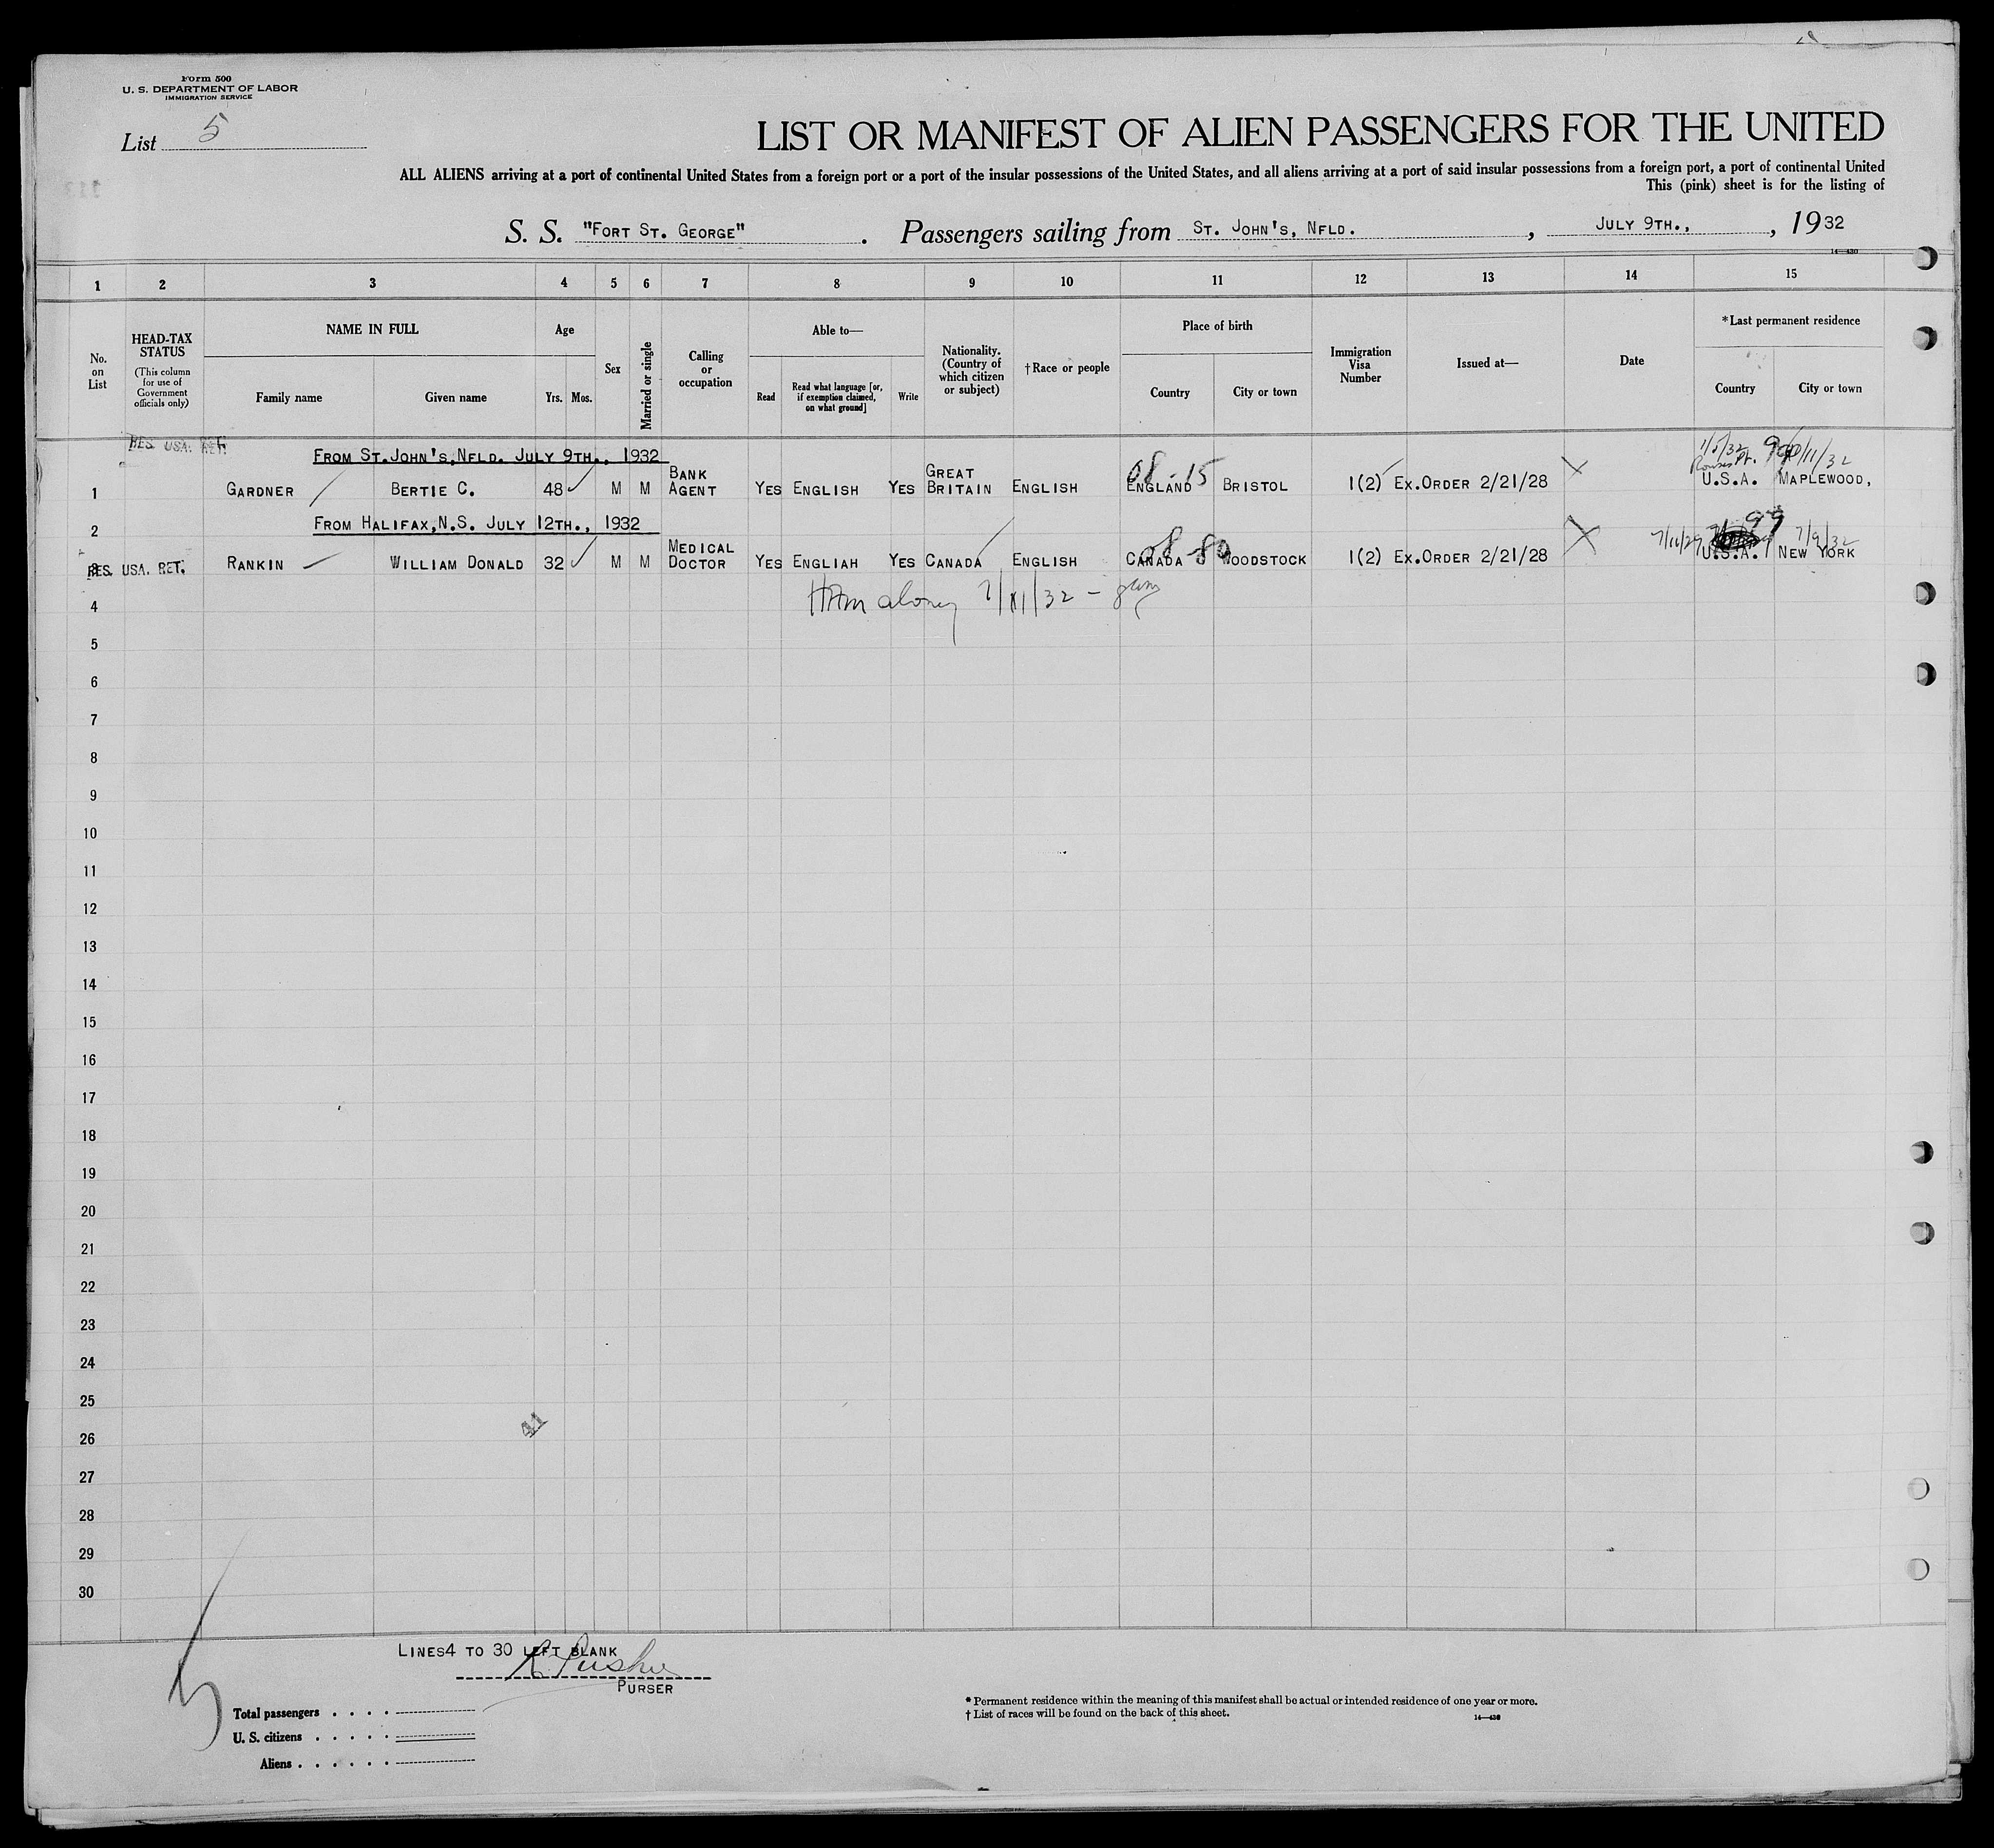 Form 500
U. S. DEPARTMENT OF LABOR
IMMIGRATION SERVICE
List 5
LIST OR MANIFEST OF ALIEN PASSENGERS FOR THE UNITED
ALL ALIENS arriving at a port of continental United States from a foreign port or a port of the insular possessions of the United States, and all aliens arriving at a port of said insular possessions from a foreign port, a port of continental United
This (pink) sheet is for the listing of
S. S. "FORT ST. GEORGE" . Passengers sailing from ST. JOHN'S, NFLD. , JULY 9TH., , 1932
14—430
1 2 3 4 5 6 7 8 9 10 11 12 13 14 15
No. on List
HEAD-TAX STATUS
(This column for use of Government officials only)
NAME IN FULL
Family name Given name
Age
Yrs. Mos.
Sex
Married or single
Calling or occupation
Able to—
Read
Read what language [or, if exemption claimed, on what ground]
Write
Nationality. (Country of which citizen or subject)
†Race or people
Place of birth
Country City or town
Immigration Visa Number
Issued at—
Date
*Last permanent residence
Country City or town
RES. USA. RET.
FROM ST.JOHN'S,NFLD. JULY 9TH., 1932
1/5/32 99
Rouses Pt.
08-15
1 GARDNER BERTIE C. 48 M M BANK AGENT YES ENGLISH YES GREAT BRITAIN ENGLISH ENGLAND BRISTOL 1(2) EX.ORDER 2/21/28 U.S.A. MAPLEWOOD,
2 FROM HALIFAX,N.S. JULY 12TH., 1932
99
7/9/32
08-80
3 RES. USA. RET. RANKIN WILLIAM DONALD 32 M M MEDICAL DOCTOR YES ENGLIAH YES CANADA ENGLISH CANADA WOODSTOCK 1(2) EX.ORDER 2/21/28 U.S.A. NEW YORK
4
5
6
7
8
9
10
11
12
13
14
15
16
17
18
19
20
21
22
23
24
25
41
26
27
28
29
30
LINES4 TO 30 LEFT BLANK
PURSER
5
Total passengers . . . .
U. S. citizens . . . . .
Aliens . . . . . .
* Permanent residence within the meaning of this manifest shall be actual or intended residence of one year or more.
† List of races will be found on the back of this sheet.
14—430